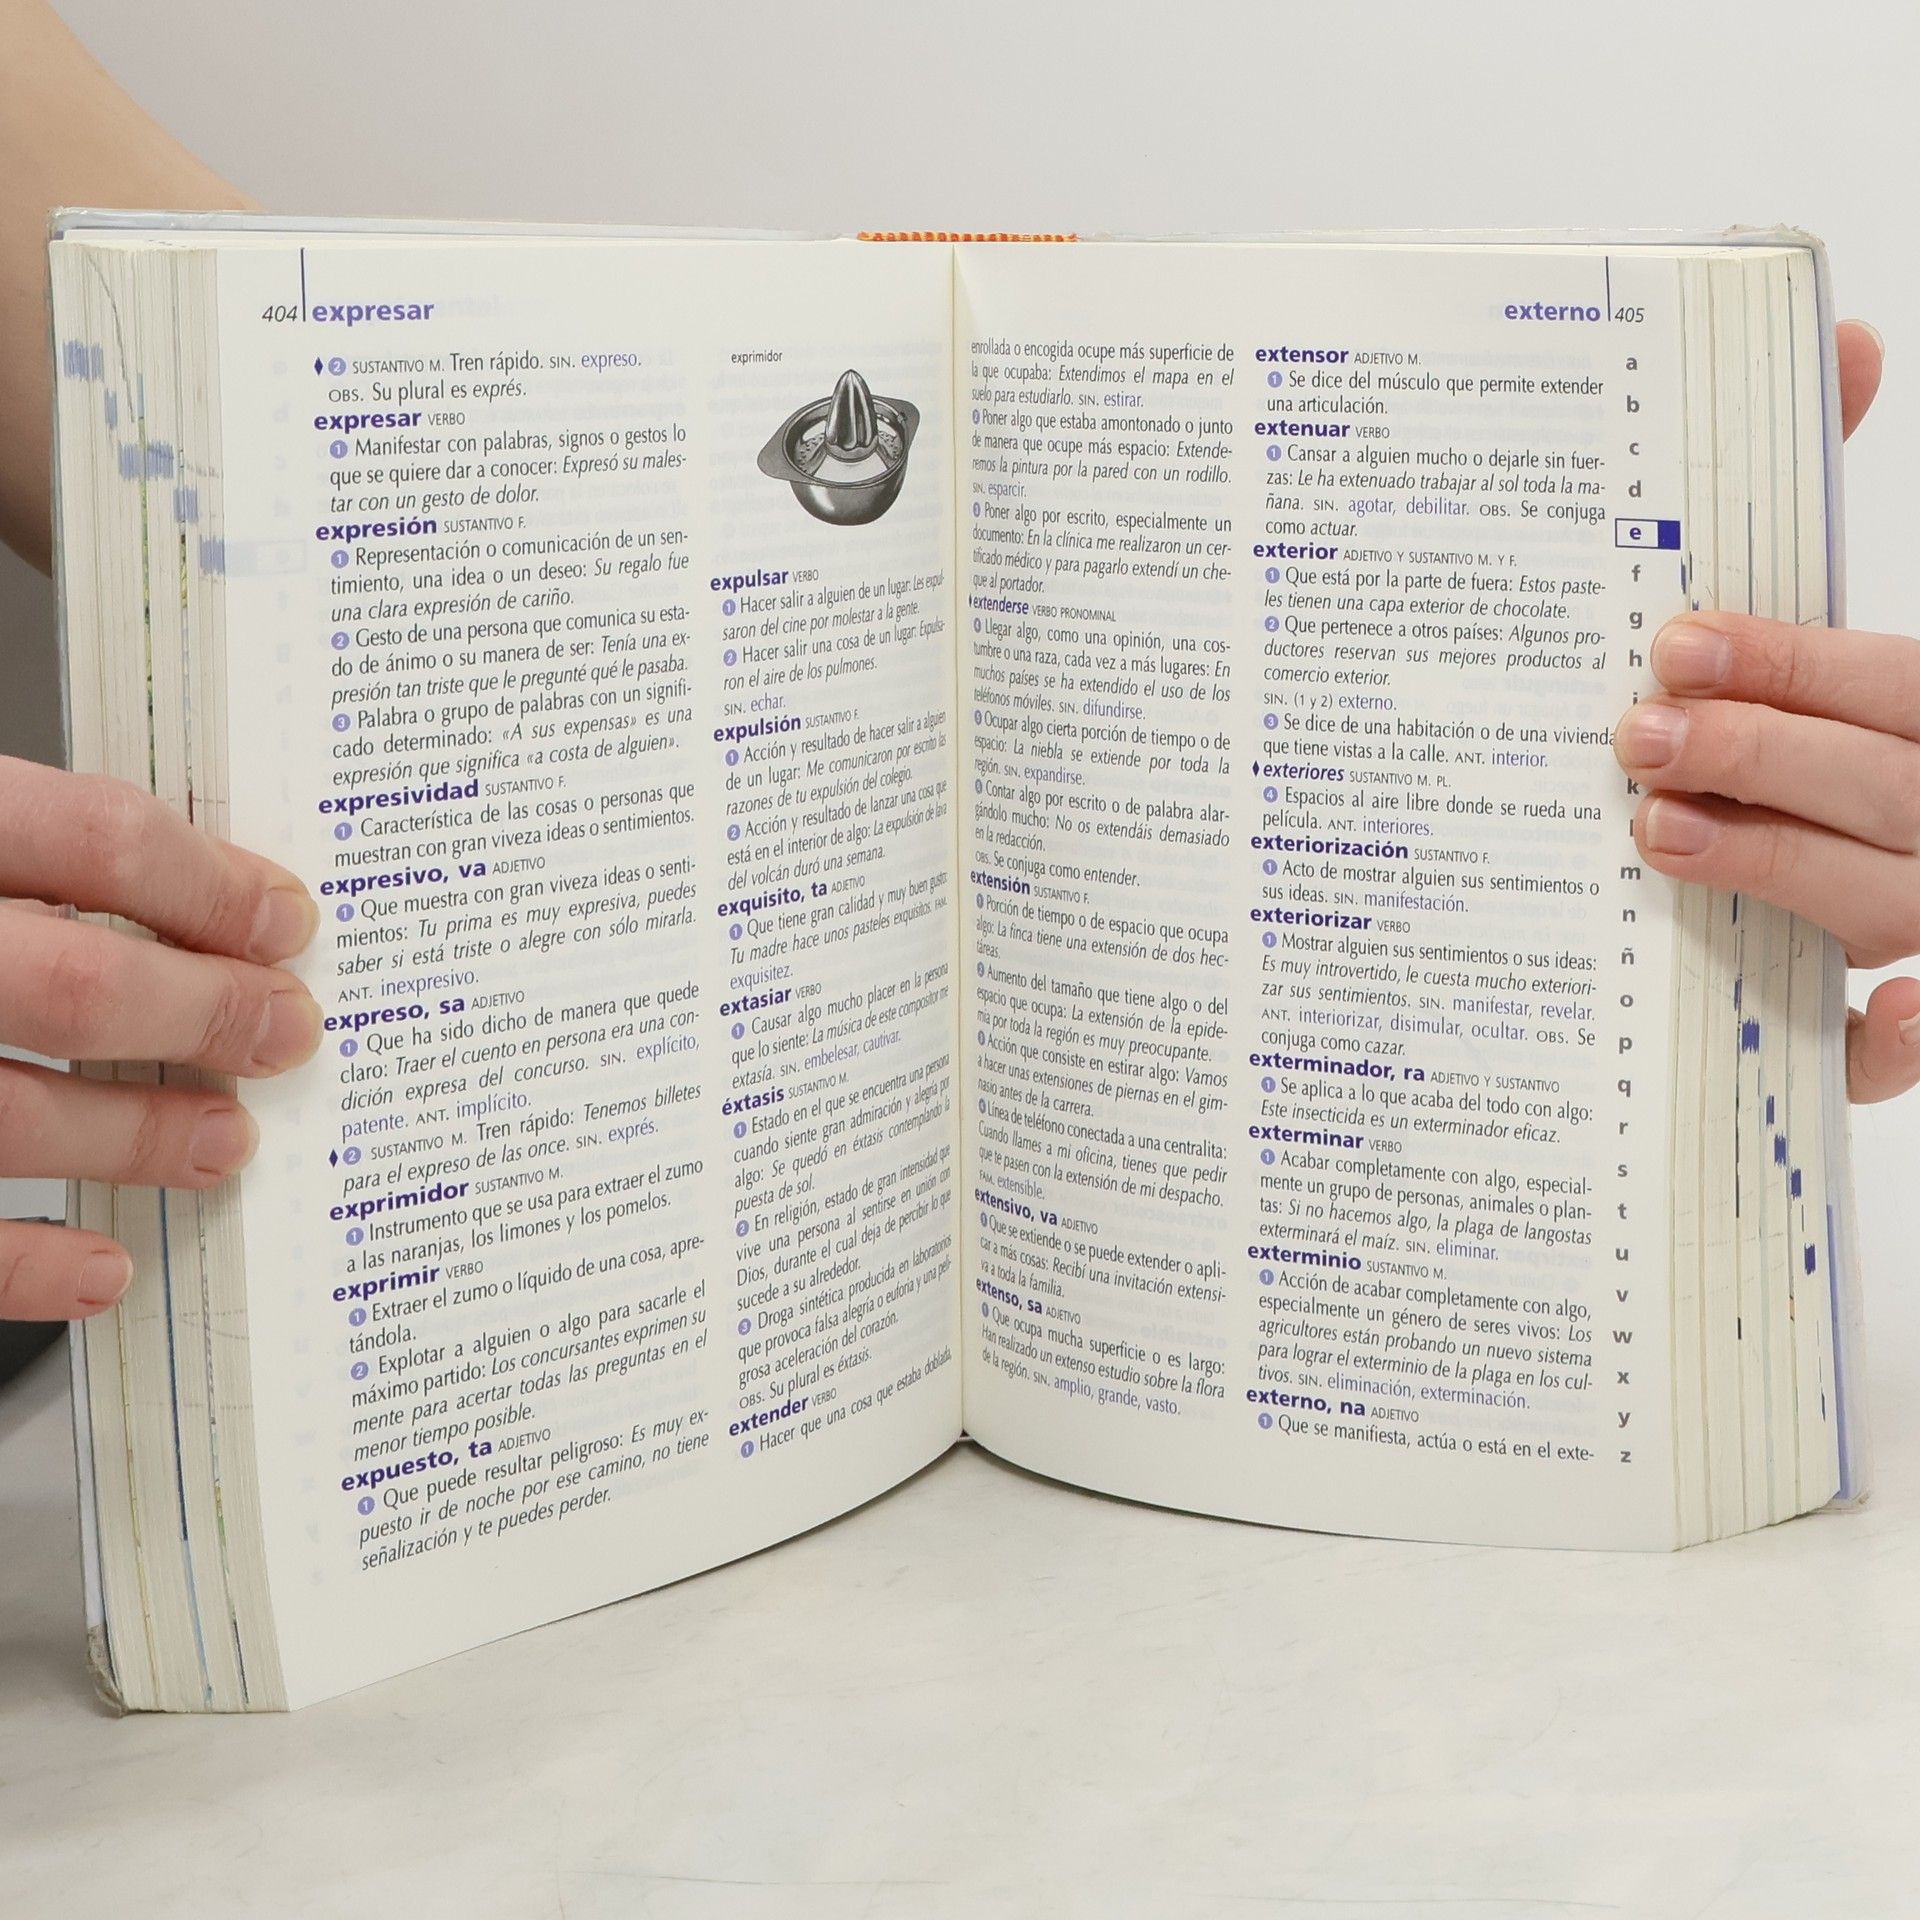 404 expresar
♦ ② SUSTANTIVO M. Tren rápido. SIN. expreso.
OBS. Su plural es exprés.
expresar VERBO
① Manifestar con palabras, signos o gestos lo
que se quiere dar a conocer: Expresó su males-
tar con un gesto de dolor.
expresión SUSTANTIVO F.
① Representación o comunicación de un sen-
timiento, una idea o un deseo: Su regalo fue
una clara expresión de cariño.
② Gesto de una persona que comunica su esta-
do de ánimo o su manera de ser: Tenía una ex-
presión tan triste que le pregunté qué le pasaba.
③ Palabra o grupo de palabras con un signifi-
cado determinado: «A sus expensas» es una
expresión que significa «a costa de alguien».
expresividad SUSTANTIVO F.
① Característica de las cosas o personas que
muestran con gran viveza ideas o sentimientos.
expresivo, va ADJETIVO
① Que muestra con gran viveza ideas o senti-
mientos: Tu prima es muy expresiva, puedes
saber si está triste o alegre con sólo mirarla.
ANT. inexpresivo.
expreso, sa ADJETIVO
① Que ha sido dicho de manera que quede
claro: Traer el cuento en persona era una con-
dición expresa del concurso. SIN. explícito,
patente. ANT. implícito.
♦ ② SUSTANTIVO M. Tren rápido: Tenemos billetes
para el expreso de las once. SIN. exprés.
exprimidor SUSTANTIVO M.
① Instrumento que se usa para extraer el zumo
a las naranjas, los limones y los pomelos.
exprimir VERBO
① Extraer el zumo o líquido de una cosa, apre-
tándola.
② Explotar a alguien o algo para sacarle el
máximo partido: Los concursantes exprimen su
mente para acertar todas las preguntas en el
menor tiempo posible.
expuesto, ta ADJETIVO
① Que puede resultar peligroso: Es muy ex-
puesto ir de noche por ese camino, no tiene
señalización y te puedes perder.
exprimidor
expulsar VERBO
① Hacer salir a alguien de un lugar: Les expul-
saron del cine por molestar a la gente.
② Hacer salir una cosa de un lugar: Expulsa-
ron el aire de los pulmones.
SIN. echar.
expulsión SUSTANTIVO F.
① Acción y resultado de hacer salir a alguien
de un lugar: Me comunicaron por escrito las
razones de tu expulsión del colegio.
② Acción y resultado de lanzar una cosa que
está en el interior de algo: La expulsión de lava
del volcán duró una semana.
exquisito, ta ADJETIVO
① Que tiene gran calidad y muy buen gusto:
Tu madre hace unos pasteles exquisitos. FAM.
exquisitez.
extasiar VERBO
① Causar algo mucho placer en la persona
que lo siente: La música de este compositor me
extasía. SIN. embelesar, cautivar.
éxtasis SUSTANTIVO M.
① Estado en el que se encuentra una persona
cuando siente gran admiración y alegría por
algo: Se quedó en éxtasis contemplando la
puesta de sol.
② En religión, estado de gran intensidad que
vive una persona al sentirse en unión con
Dios, durante el cual deja de percibir lo que
sucede a su alrededor.
③ Droga sintética producida en laboratorios
que provoca falsa alegría o euforia y una peli-
grosa aceleración del corazón.
OBS. Su plural es éxtasis.
extender VERBO
① Hacer que una cosa que estaba doblada,
externo 405
enrollada o encogida ocupe más superficie de
la que ocupaba: Extendimos el mapa en el
suelo para estudiarlo. SIN. estirar.
② Poner algo que estaba amontonado o junto
de manera que ocupe más espacio: Extende-
remos la pintura por la pared con un rodillo.
SIN. esparcir.
③ Poner algo por escrito, especialmente un
documento: En la clínica me realizaron un cer-
tificado médico y para pagarlo extendí un che-
que al portador.
♦ extenderse VERBO PRONOMINAL
④ Llegar algo, como una opinión, una cos-
tumbre o una raza, cada vez a más lugares: En
muchos países se ha extendido el uso de los
teléfonos móviles. SIN. difundirse.
⑤ Ocupar algo cierta porción de tiempo o de
espacio: La niebla se extiende por toda la
región. SIN. expandirse.
⑥ Contar algo por escrito o de palabra alar-
gándolo mucho: No os extendáis demasiado
en la redacción.
OBS. Se conjuga como entender.
extensión SUSTANTIVO F.
① Porción de tiempo o de espacio que ocupa
algo: La finca tiene una extensión de dos hec-
táreas.
② Aumento del tamaño que tiene algo o del
espacio que ocupa: La extensión de la epide-
mia por toda la región es muy preocupante.
③ Acción que consiste en estirar algo: Vamos
a hacer unas extensiones de piernas en el gim-
nasio antes de la carrera.
④ Línea de teléfono conectada a una centralita:
Cuando llames a mi oficina, tienes que pedir
que te pasen con la extensión de mi despacho.
FAM. extensible.
extensivo, va ADJETIVO
① Que se extiende o se puede extender o apli-
car a más cosas: Recibí una invitación extensi-
va a toda la familia.
extenso, sa ADJETIVO
① Que ocupa mucha superficie o es largo:
Han realizado un extenso estudio sobre la flora
de la región. SIN. amplio, grande, vasto.
extensor ADJETIVO M.
① Se dice del músculo que permite extender
una articulación.
extenuar VERBO
① Cansar a alguien mucho o dejarle sin fuer-
zas: Le ha extenuado trabajar al sol toda la ma-
ñana. SIN. agotar, debilitar. OBS. Se conjuga
como actuar.
exterior ADJETIVO Y SUSTANTIVO M. Y F.
① Que está por la parte de fuera: Estos paste-
les tienen una capa exterior de chocolate.
② Que pertenece a otros países: Algunos pro-
ductores reservan sus mejores productos al
comercio exterior.
SIN. (1 y 2) externo.
③ Se dice de una habitación o de una vivienda
que tiene vistas a la calle. ANT. interior.
♦ exteriores SUSTANTIVO M. PL.
④ Espacios al aire libre donde se rueda una
película. ANT. interiores.
exteriorización SUSTANTIVO F.
① Acto de mostrar alguien sus sentimientos o
sus ideas. SIN. manifestación.
exteriorizar VERBO
① Mostrar alguien sus sentimientos o sus ideas:
Es muy introvertido, le cuesta mucho exteriori-
zar sus sentimientos. SIN. manifestar, revelar.
ANT. interiorizar, disimular, ocultar. OBS. Se
conjuga como cazar.
exterminador, ra ADJETIVO Y SUSTANTIVO
① Se aplica a lo que acaba del todo con algo:
Este insecticida es un exterminador eficaz.
exterminar VERBO
① Acabar completamente con algo, especial-
mente un grupo de personas, animales o plan-
tas: Si no hacemos algo, la plaga de langostas
exterminará el maíz. SIN. eliminar.
exterminio SUSTANTIVO M.
① Acción de acabar completamente con algo,
especialmente un género de seres vivos: Los
agricultores están probando un nuevo sistema
para lograr el exterminio de la plaga en los cul-
tivos. SIN. eliminación, exterminación.
externo, na ADJETIVO
① Que se manifiesta, actúa o está en el exte-
a
b
c
d
e
f
g
h
i
k
l
m
n
ñ
o
p
q
r
s
t
u
v
w
x
y
z